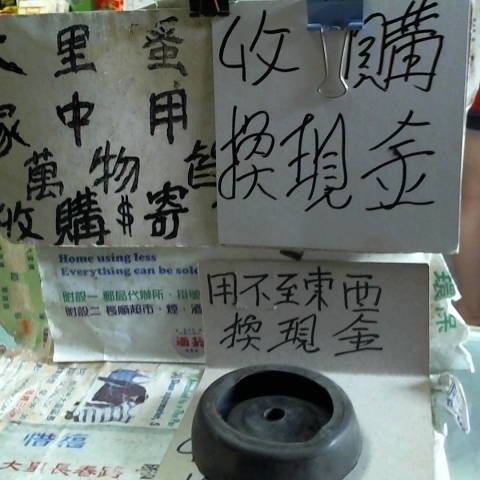 大里蛋
家中用
萬物皆
收購$寄
收購
換現金
Home using less
Everything can be sole
附設一郵局代辦所、掛號
附設二長順超市、煙、酒
用不至東西
換現金
惜福
大里長春路
環保